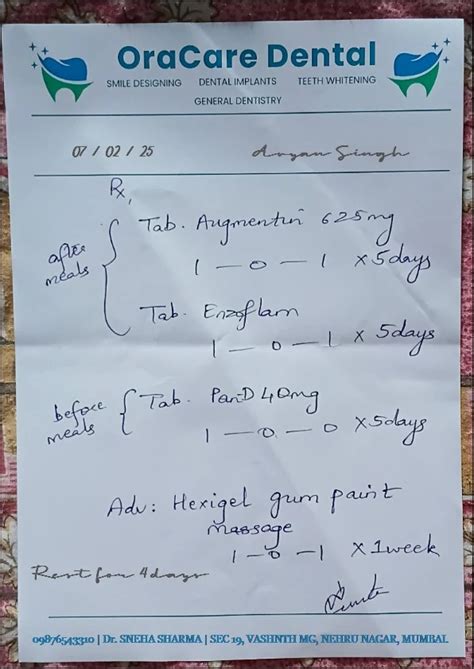 OraCare Dental
SMILE DESIGNING DENTAL IMPLANTS TEETH WHITENING
GENERAL DENTISTRY
07 / 02 / 25 Aryan Singh
Rx,
after meals
Tab. Augmentin 625mg
1 — 0 — 1 x 5days
Tab. Enzoflam
1 — 0 — 1 x 5days
before meals
Tab. PanD 40mg
1 — 0 — 0 x 5days
Adv: Hexigel gum paint
massage
1 - 0 - 1 x 1week
Rest for 4 days
09876543310 | Dr. SNEHA SHARMA | SEC 19, VASHNTH MG, NEHRU NAGAR, MUMBAL